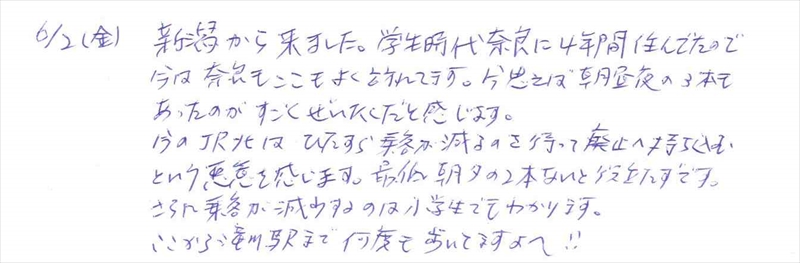 6/2(金) 新潟から来ました。学生時代奈良に4年間住んでたので
今は奈良もここもよく訪れてます。今思えば朝昼夜の3本も
あったのがすごくぜいたくだと感じます。
今のJR北はひたすら乗客が減るのを待って廃止へ持ち込む
という悪意を感じます。最低朝夕の2本ないと役立たずです。
さらに乗客が減少するのは小学生でもわかります。
ここから滝川駅まで何度も歩いてますよ〜!!